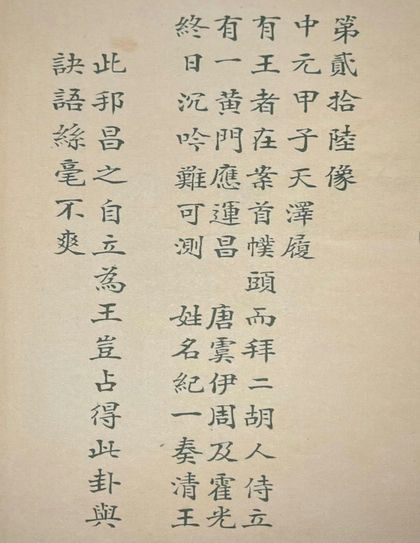 第貳拾陸像
中元甲子天澤履
有王者在案首幞頭而拜二胡人侍立
有一黃門應運昌　唐虞伊周及霍光
終日沉吟難可測　姓名紀一奏清王
此邦昌之自立為王豈占得此卦與
訣語絲毫不爽